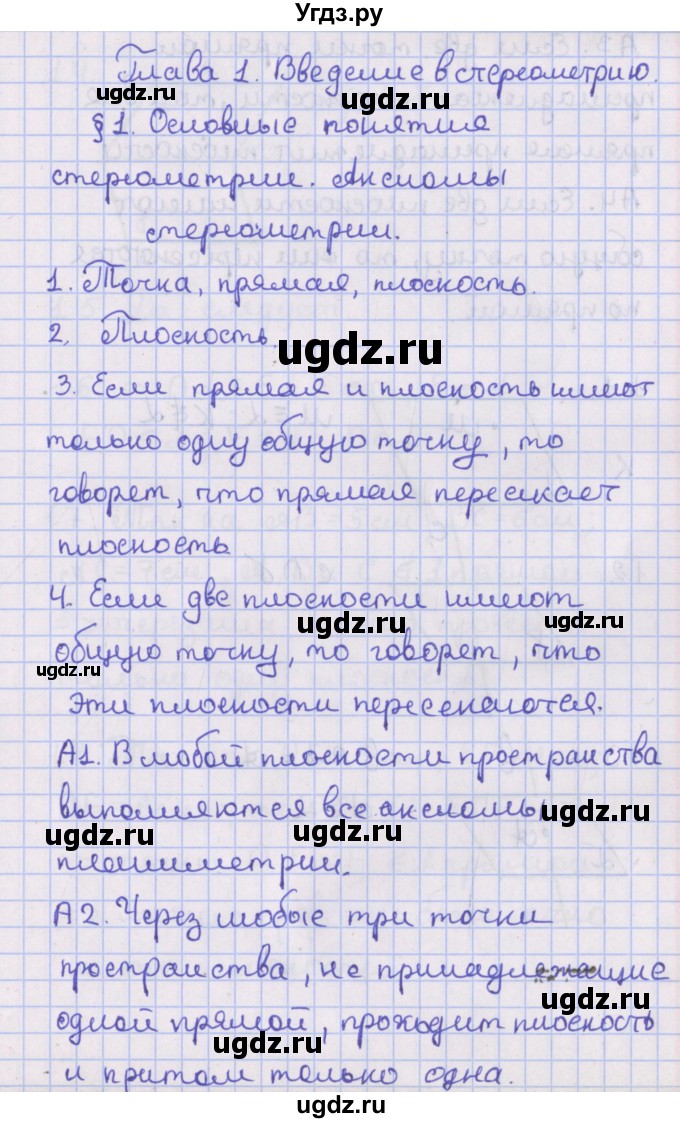 Угдз.ру
Глава 1. Введение в стереометрию.
§ 1. Основные понятия
стереометрии. Аксиомы
стереометрии.
1. Точка, прямая, плоскость.
2. Плоскость.
3. Если прямая и плоскость имеют
только одну общую точку, то
говорят, что прямая пересекает
плоскость
4. Если две плоскости имеют
общую точку, то говорят, что
Эти плоскости пересекаются.
А1. В любой плоскости пространства
выполняются все аксиомы
планиметрии.
А2. Через любые три точки
пространства, не принадлежащие
одной прямой, проходит плоскость
и притом только одна.
ugdz.ru
ugdz.ru
ugdz.ru
ugdz.ru
ugdz.ru
ugdz.ru
ugdz.ru
ugdz.ru
ugdz.ru
ugdz.ru
ugdz.ru
ugdz.ru
ugdz.ru
ugdz.ru